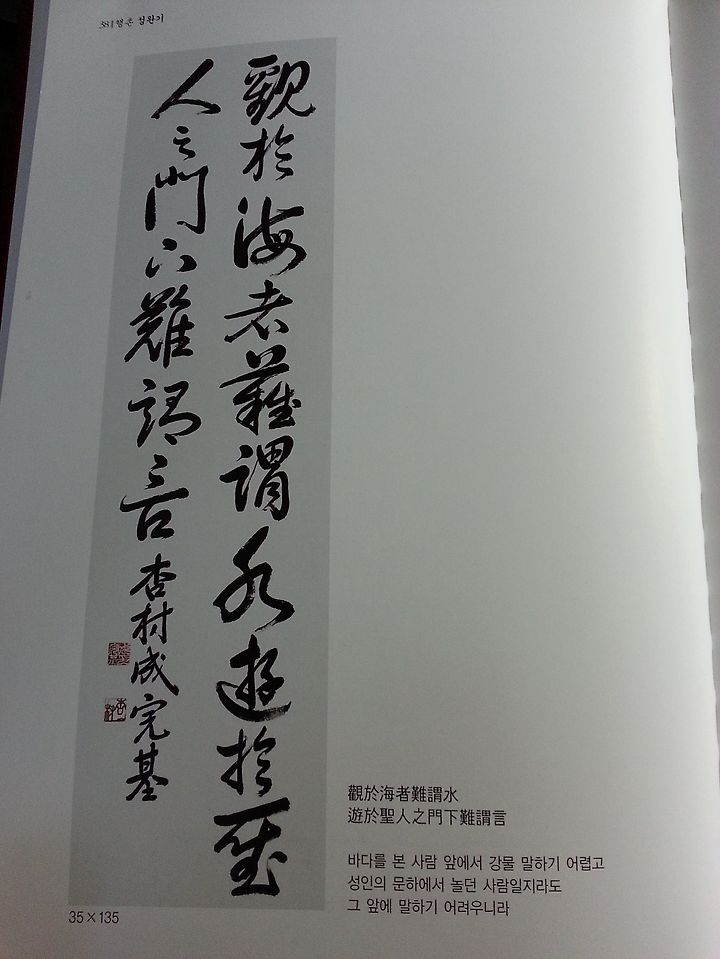 38 | 행촌 성완기
觀於海者難謂水遊於聖
人之門下難謂言 杏村成完基
觀於海者難謂水
遊於聖人之門下難謂言
바다를 본 사람 앞에서 강물 말하기 어렵고
성인의 문하에서 놀던 사람일지라도
그 앞에 말하기 어려우니라
35×135